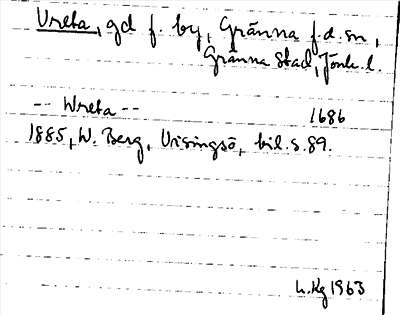 Vreta, gd f. by, Gränna f.d. sn,
Gränna Stad, Jönk. l.
-- Wreta -- 1686
1885, W. Berg, Visingsö, bil. s. 89.
L. Kg 1963